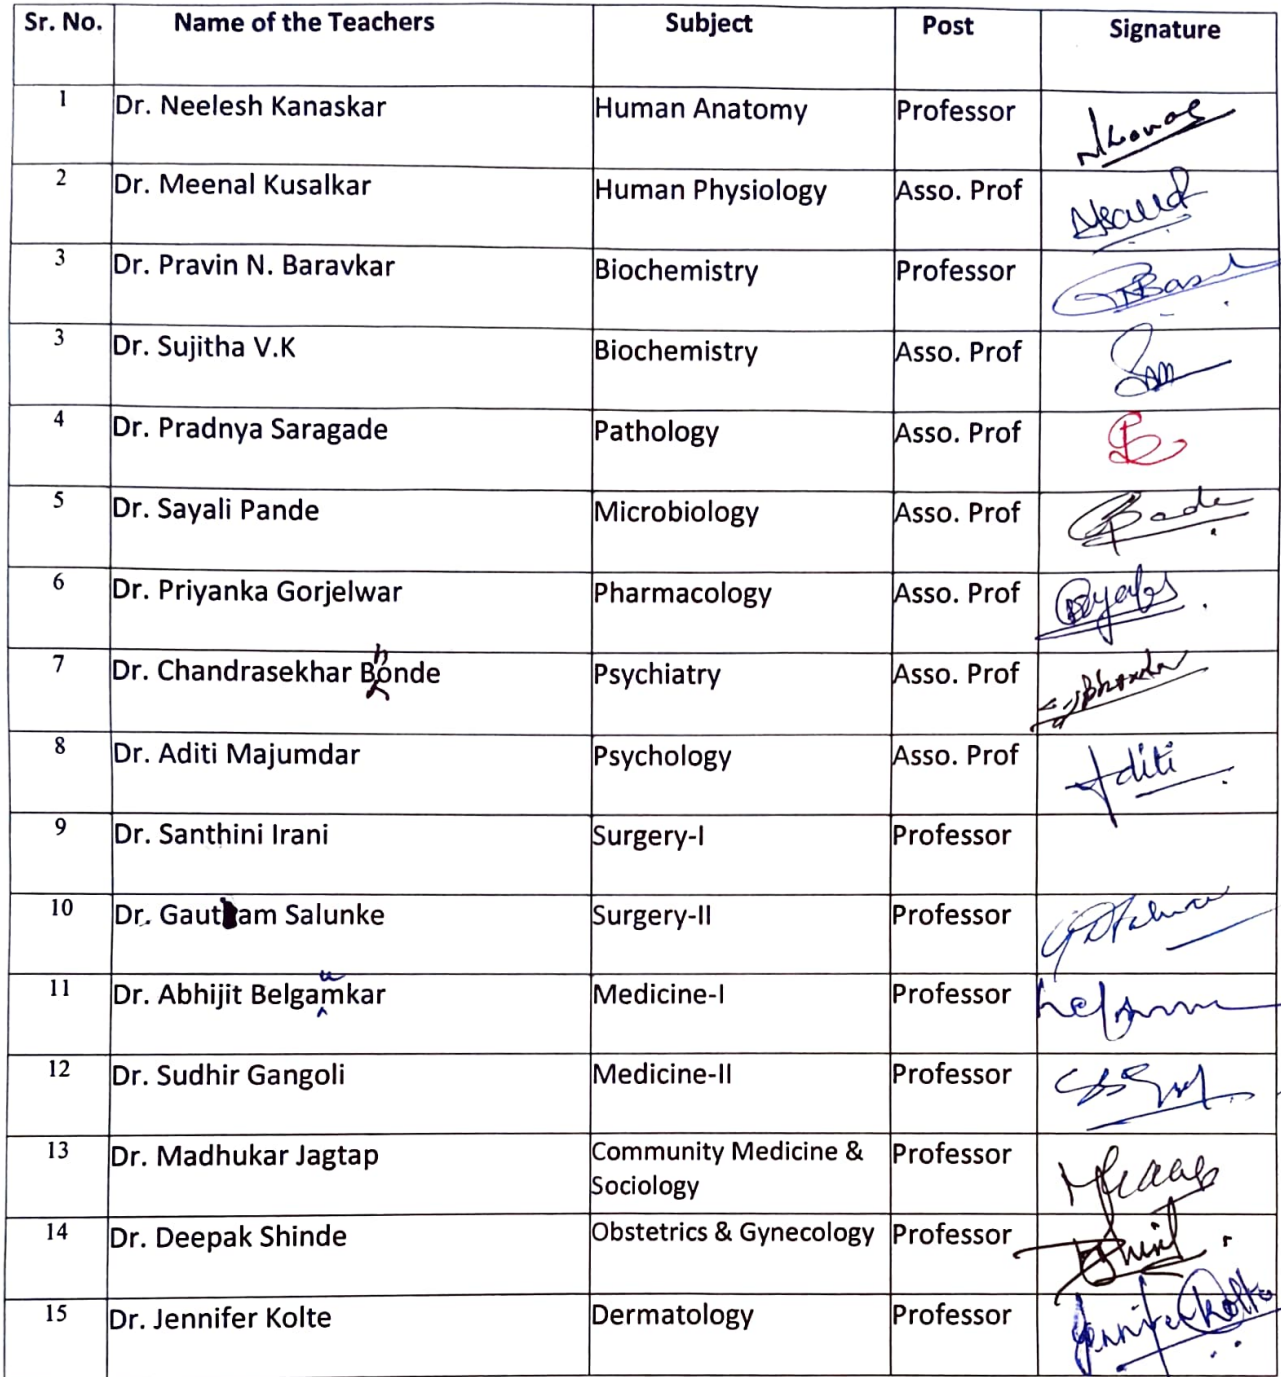 Sr. No. Name of the Teachers Subject Post Signature
1 Dr. Neelesh Kanaskar Human Anatomy Professor
2 Dr. Meenal Kusalkar Human Physiology Asso. Prof
3 Dr. Pravin N. Baravkar Biochemistry Professor
3 Dr. Sujitha V.K Biochemistry Asso. Prof
4 Dr. Pradnya Saragade Pathology Asso. Prof
5 Dr. Sayali Pande Microbiology Asso. Prof
6 Dr. Priyanka Gorjelwar Pharmacology Asso. Prof
7 Dr. Chandrasekhar Bhonde Psychiatry Asso. Prof
8 Dr. Aditi Majumdar Psychology Asso. Prof Aditi
9 Dr. Santhini Irani Surgery-I Professor
10 Dr. Gautam Salunke Surgery-II Professor
11 Dr. Abhijit Belgaumkar Medicine-I Professor
12 Dr. Sudhir Gangoli Medicine-II Professor
13 Dr. Madhukar Jagtap Community Medicine & Professor
Sociology
14 Dr. Deepak Shinde Obstetrics & Gynecology Professor
15 Dr. Jennifer Kolte Dermatology Professor Jennifer Kolte